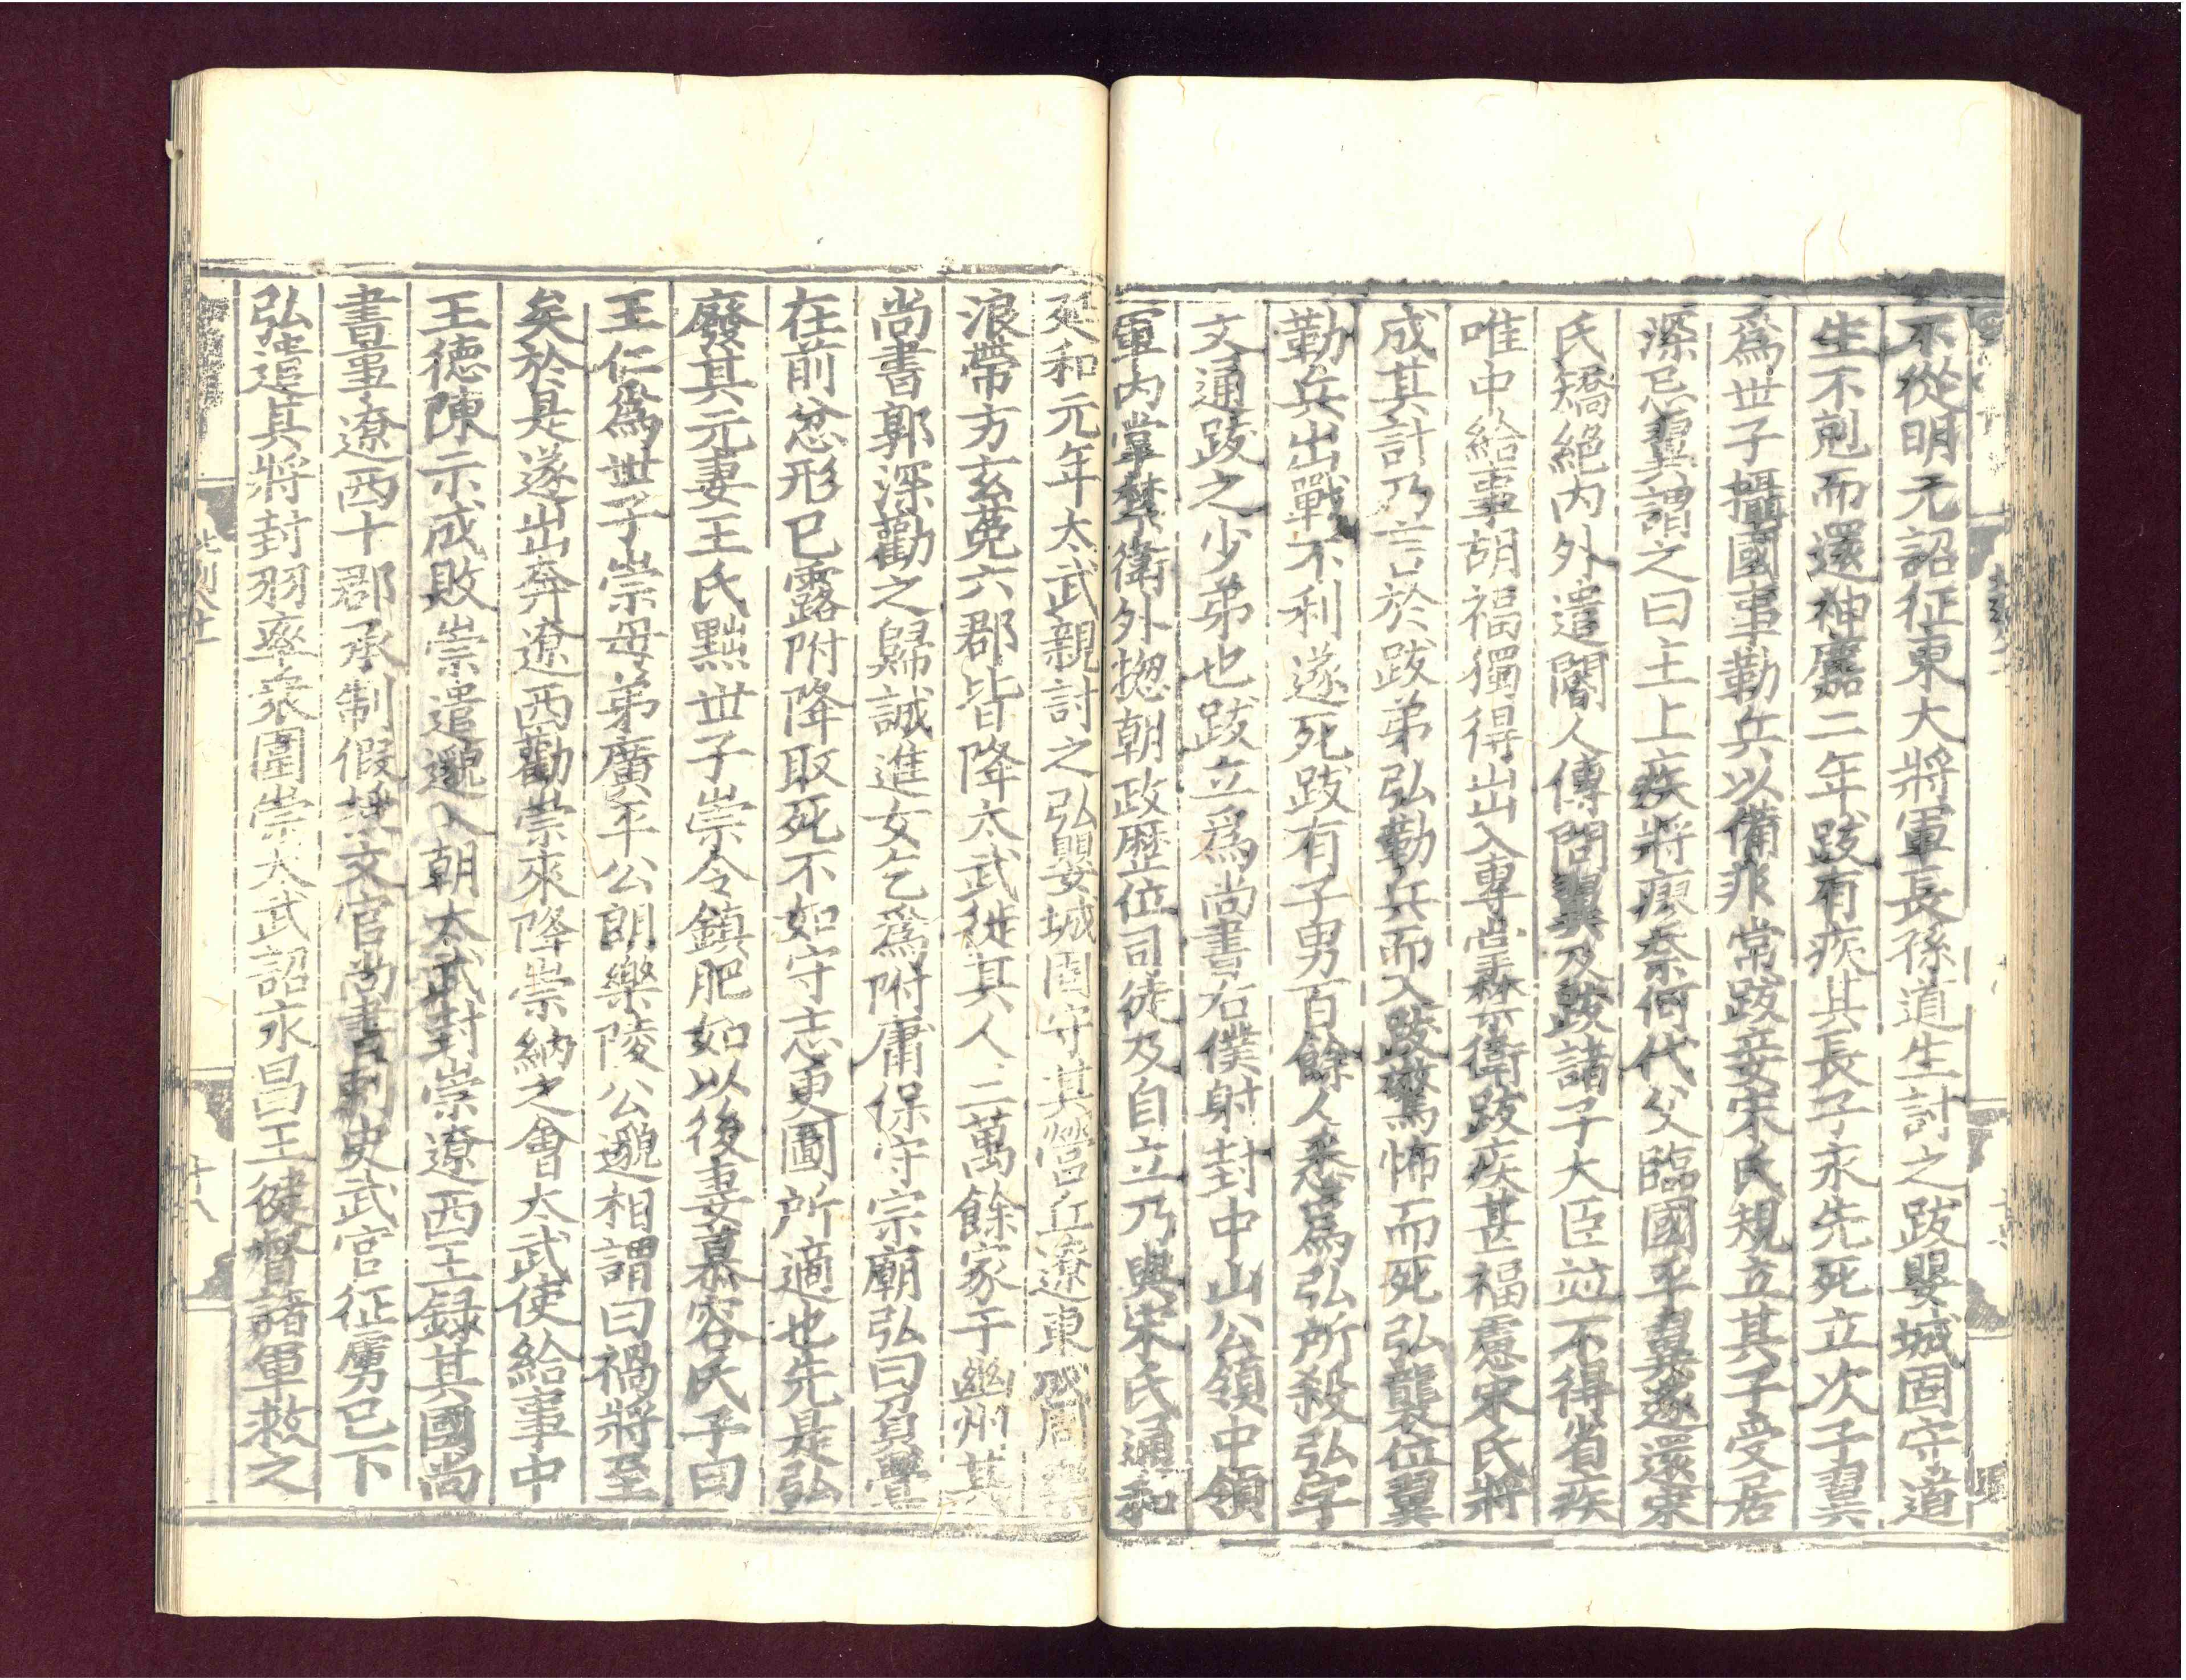 不從明元詔征東大將軍長孫道生討之跋嬰城固守道
生不剋而還神䴥二年跋有疾其長子永先死立次子翼
爲世子攝國事勒兵以備非常跋妾宋氏規立其子受居
深忌翼謂之曰主上疾將瘳柰何代父臨國乎翼遂還宋
氏矯絕內外遣閽人傳問翼及跋諸子大臣竝不得省疾
唯中給事胡福獨得出入專掌禁衛跋疾甚福慮宋氏將
成其計乃言於跋弟弘勒兵而入跋驚怖而死弘襲位翼
勒兵出戰不利遂死跋有子男百餘人悉爲弘所殺弘字
文通跋之少弟也跋立爲尚書右僕射封中山公領中領
軍內掌禁衛外揔朝政歷位司徒及自立乃與宋氏通和
延和元年太武親討之弘嬰城固守其營丘遼東成周樂
浪帶方玄菟六郡皆降太武徙其人三萬餘家于幽州其
尚書郭深勸之歸誠進女乞爲附庸保守宗廟弘曰負釁
在前忿形已露附降取死不如守志更圖所適也先是弘
廢其元妻王氏黜世子崇令鎮肥如以後妻慕容氏子曰
王仁爲世子崇母弟廣平公朗樂陵公邈相謂曰禍將至
矣於是遂出奔遼西勸崇來降崇納之會太武使給事中
王德陳示成敗崇遣邈入朝太武封崇遼西王録其國尚
書事遼西十郡承制假授文官尚書刺史武官征虜已下
弘遣其將封羽率衆圍崇太武詔永昌王健督諸軍救之
北列八十一
十八